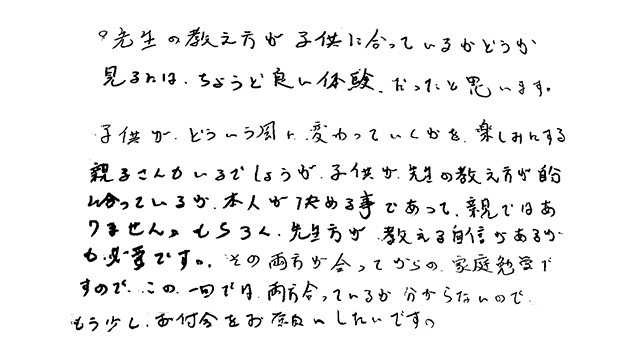 ○先生の教え方が子供に合っているかどうか
見るには、ちょうど良い体験、だったと思います。
子供が、どういう風に、変わっていくかを、楽しみにする
親ごさんもいるでしょうが、子供が、先生の教え方が自分
に合っているか、本人が決める事であって、親ではあ
りません。もちろん、先生方が教える自信があるか
も必要です。その両方が合ってからの、家庭勉学で
すので、この、一回では、両方合っているか分からないので、
もう少し、お付合をお願いしたいです。